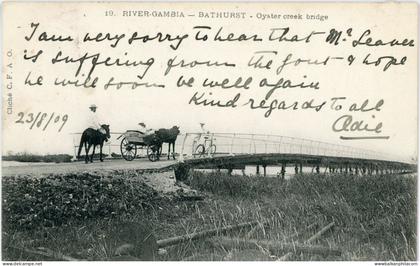 19. RIVER-GAMBIA — BATHURST - Oyster creek bridge
I am very sorry to hear that Mr. Leaver
is suffering from the gout & hope
he will soon be well again
Kind regards to all
Addie
23/8/09
Cliché C. F. A. O.